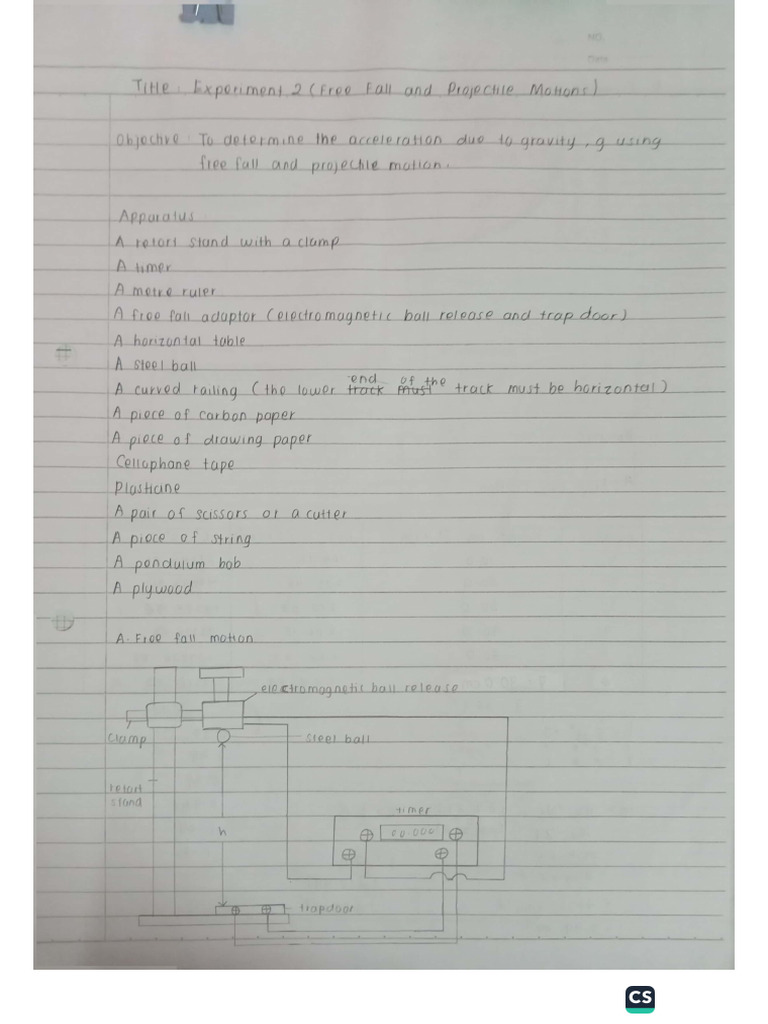 NO.
Date
Title : Experiment 2 (Free Fall and Projectile Motions)
Objective : To determine the acceleration due to gravity, g using
free fall and projectile motion.
Apparatus
A retort stand with a clamp
A timer
A metre ruler
A free fall adaptor (electromagnetic ball release and trap door)
A horizontal table
A steel ball
A curved railing (the lower track must end of the track must be horizontal)
A piece of carbon paper
A piece of drawing paper
Cellophane tape
Plasticine
A pair of scissors or a cutter
A piece of string
A pendulum bob
A plywood
A. Free fall motion
electromagnetic ball release
clamp
steel ball
retort
stand
timer
00.000
h
trapdoor
CS